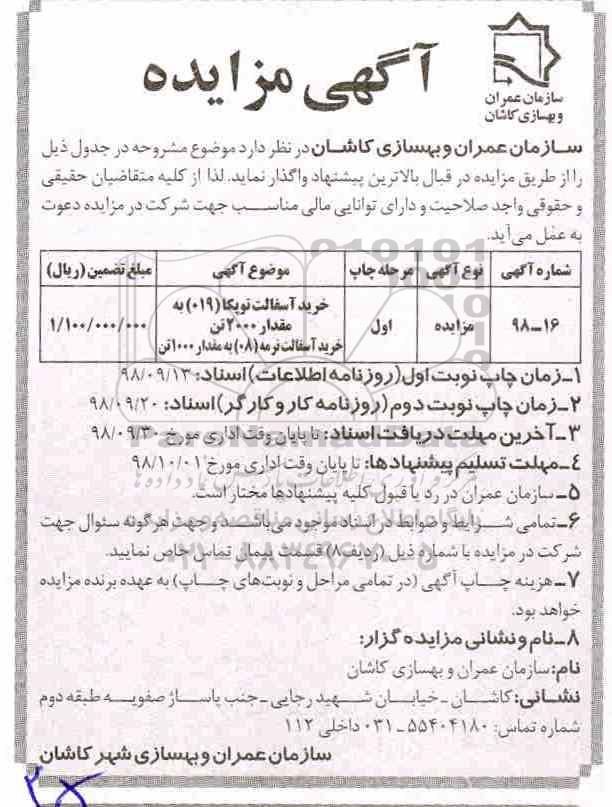 سازمان عمران
و بهسازی کاشان
آگهی مزایده
سازمان عمران و بهسازی کاشان در نظر دارد موضوع مشروحه در جدول ذیل
را از طریق مزایده در قبال بالاترین پیشنهاد واگذار نماید. لذا از کلیه متقاضیان حقیقی
و حقوقی واجد صلاحیت و دارای توانایی مالی مناسب جهت شرکت در مزایده دعوت
به عمل می‌آید.
شماره آگهی نوع آگهی مرحله چاپ موضوع آگهی مبلغ تضمین (ریال)
۱۶-۹۸ مزایده اول خرید آسفالت توپکا (۰۱۹) به مقدار ۲۰۰۰ تن ۱/۱۰۰/۰۰۰/۰۰۰
خرید آسفالت نرمه (۰۸) به مقدار ۱۰۰۰ تن
۱-زمان چاپ نوبت اول (روزنامه اطلاعات) اسناد: ۹۸/۰۹/۱۳
۲-زمان چاپ نوبت دوم (روزنامه کار و کارگر) اسناد: ۹۸/۰۹/۲۰
۳-آخرین مهلت دریافت اسناد: تا پایان وقت اداری مورخ ۹۸/۰۹/۳۰
۴-مهلت تسلیم پیشنهادها: تا پایان وقت اداری مورخ ۹۸/۱۰/۰۱
۵-سازمان عمران در رد یا قبول کلیه پیشنهادها مختار است.
۶-تمامی شرایط و ضوابط در اسناد موجود می‌باشد و جهت هرگونه سئوال جهت
شرکت در مزایده با شماره ذیل (ردیف ۸) قسمت پیمان تماس حاصل نمایید.
۷-هزینه چاپ آگهی (در تمامی مراحل و نوبت‌های چاپ) به عهده برنده مزایده
خواهد بود.
۸-نام و نشانی مزایده گزار:
نام: سازمان عمران و بهسازی کاشان
نشانی: کاشان - خیابان شهید رجایی - جنب پاساژ صفویه طبقه دوم
شماره تماس: ۵۵۴۰۴۱۸۰-۰۳۱ داخلی ۱۱۲
سازمان عمران و بهسازی شهر کاشان